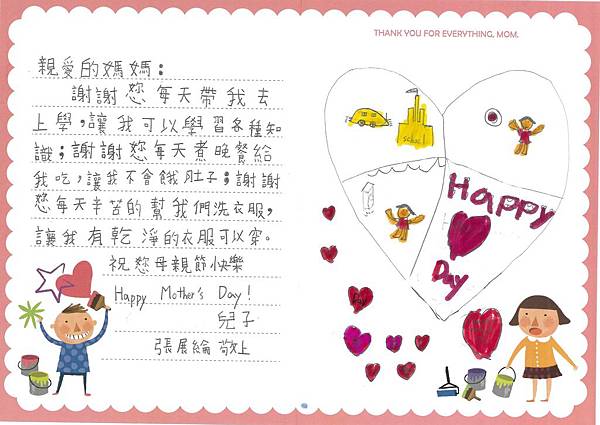 親愛的媽媽：
謝謝您每天帶我去
上學，讓我可以學習各種知
識；謝謝您每天煮晚餐給
我吃，讓我不會餓肚子；謝謝
您每天辛苦的幫我們洗衣服，
讓我有乾淨的衣服可以穿。
祝您母親節快樂
Happy Mother's Day!
兒子
張展綸 敬上
THANK YOU FOR EVERYTHING, MOM.
school
Happy
Day